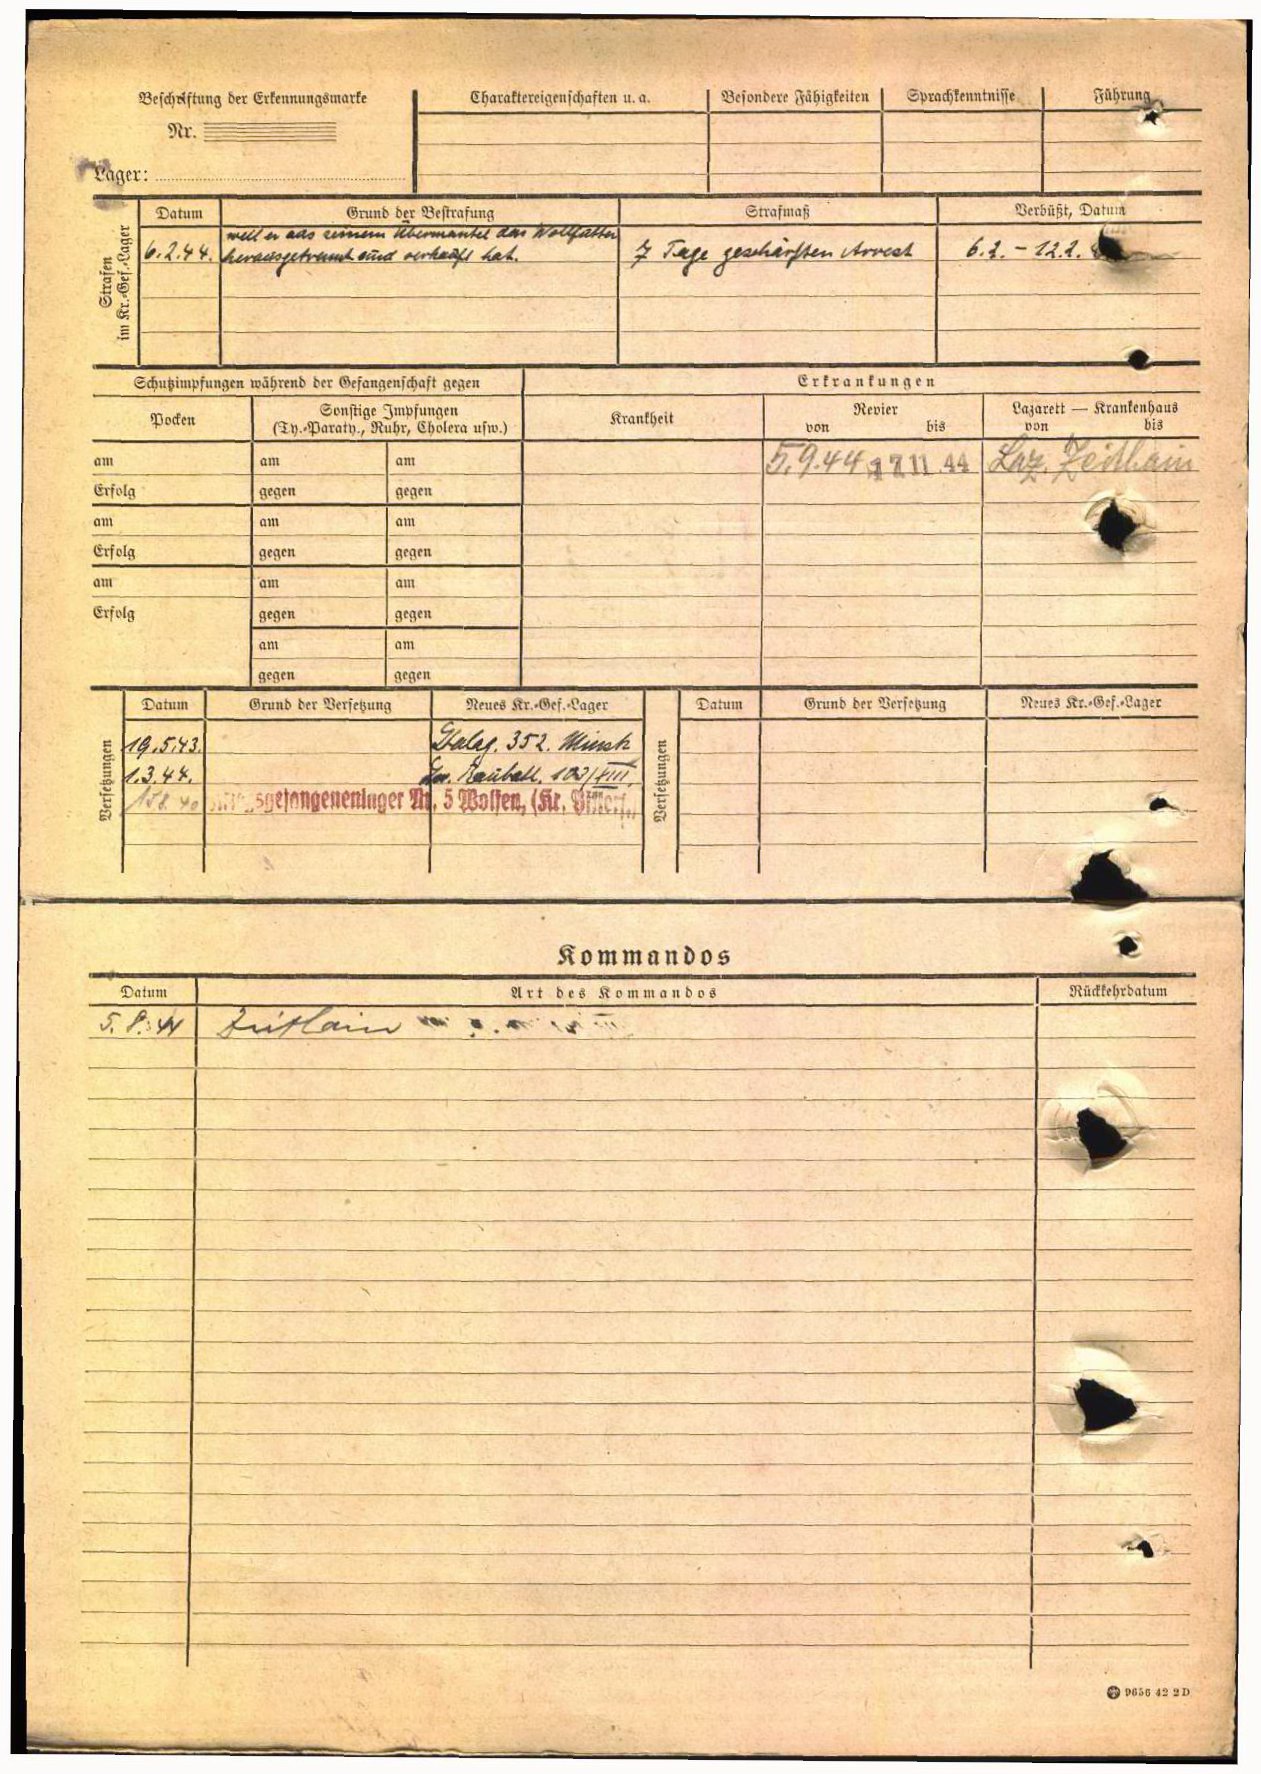 Beschriftung der Erkennungsmarke
Nr.
Lager:
Charaktereigenschaften u. a.
Besondere Fähigkeiten
Sprachkenntnisse
Führung
Strafen
im Kr.-Gef.-Lager
Datum
Grund der Bestrafung
Strafmaß
Verbüßt, Datum
weil er aus seinem Übermantel das Wollfutter
6.2.44. herausgetrennt und verkauft hat. 7 Tage geschärften Arrest 6.2. – 12.2.
Schutzimpfungen während der Gefangenschaft gegen
Erkrankungen
Pocken
Sonstige Impfungen
(Ty.-Paraty., Ruhr, Cholera usw.)
Krankheit
Revier
von bis
Lazarett — Krankenhaus
von bis
am am am 5.9.44 17 11. 44 Laz. Zeithain
Erfolg gegen gegen
am am am
Erfolg gegen gegen
am am am
Erfolg gegen gegen
am am
gegen gegen
Versetzungen
Datum Grund der Versetzung Neues Kr.-Gef.-Lager
19.5.43. Stalag. 352. Minsk
1.3.44.
gefangenenlager Nr. 5 Wolfen, (Kr.
Versetzungen
Datum Grund der Versetzung Neues Kr.-Gef.-Lager
Kommandos
Datum Art des Kommandos Rückkehrdatum
5.8.44 Zeithain
9656 42 2 D